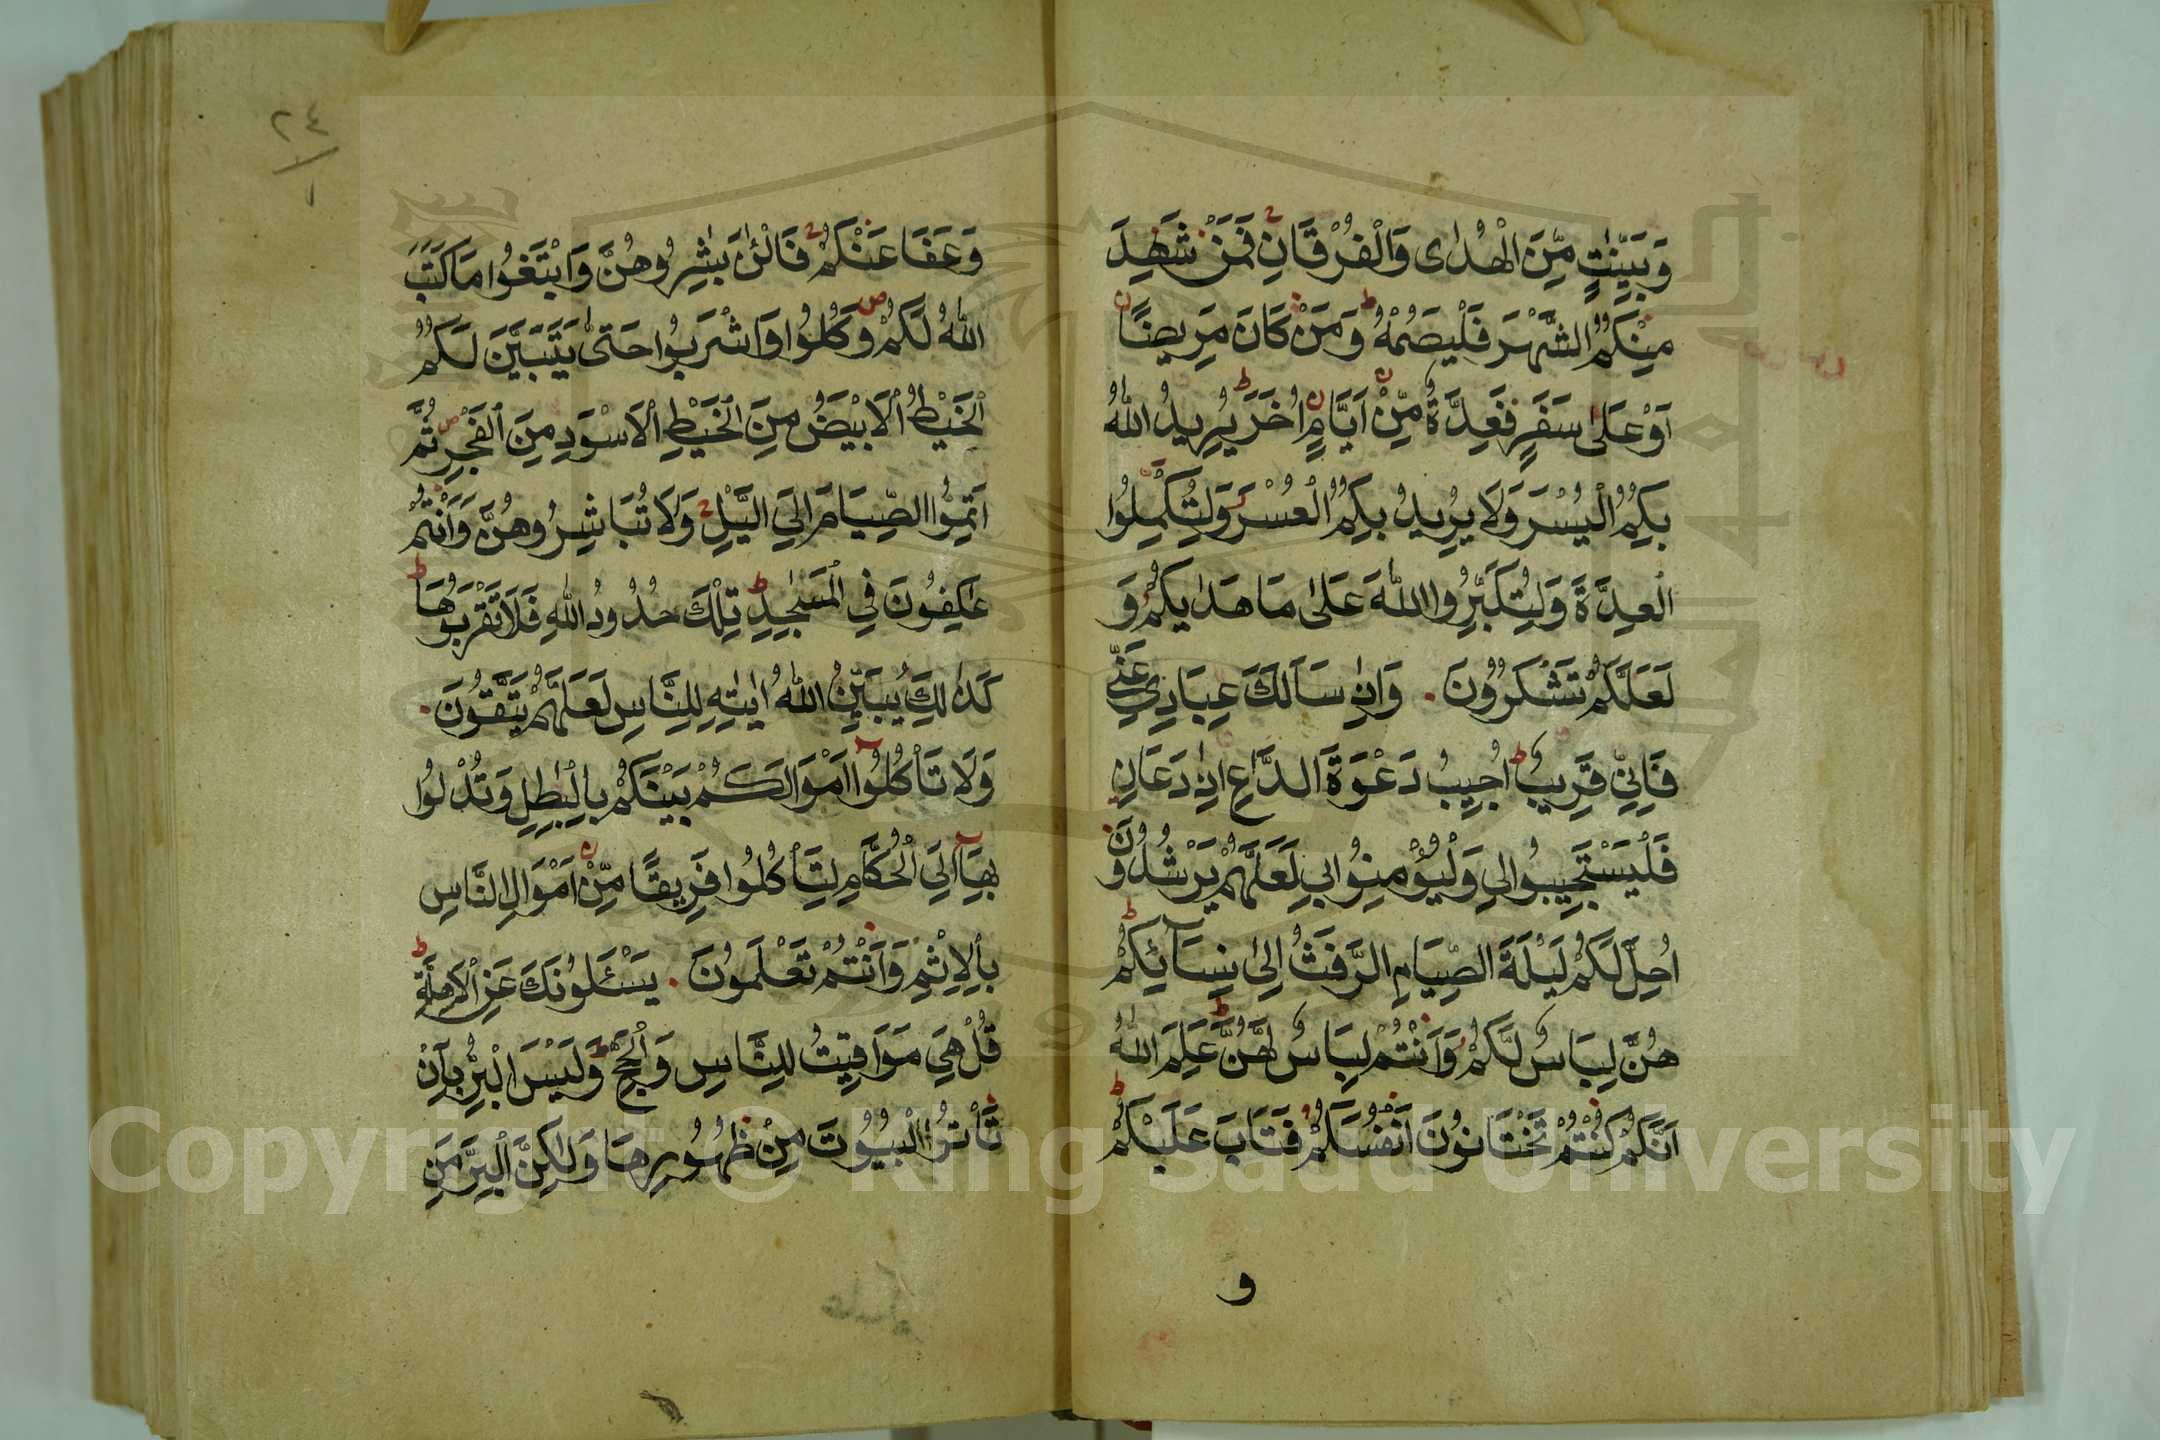 وَبَيِّنٰتٍ مِّنَ الْهُدٰى وَالْفُرْقَانِ فَمَنْ شَهِدَ
مِنْكُمُ الشَّهْرَ فَلْيَصُمْهُ وَمَنْ كَانَ مَرِيضًا
اَوْ عَلٰى سَفَرٍ فَعِدَّةٌ مِّنْ اَيَّامٍ اُخَرَ يُرِيدُ اللّٰهُ
بِكُمُ الْيُسْرَ وَلَا يُرِيدُ بِكُمُ الْعُسْرَ وَلِتُكْمِلُوا
الْعِدَّةَ وَلِتُكَبِّرُوا اللّٰهَ عَلٰى مَا هَدٰيكُمْ وَ
لَعَلَّكُمْ تَشْكُرُونَ وَاِذَا سَاَلَكَ عِبَادِي عَنِّي
فَاِنِّي قَرِيبٌ اُجِيبُ دَعْوَةَ الدَّاعِ اِذَا دَعَانِ
فَلْيَسْتَجِيبُوا لِي وَلْيُؤْمِنُوا بِي لَعَلَّهُمْ يَرْشُدُونَ
اُحِلَّ لَكُمْ لَيْلَةَ الصِّيَامِ الرَّفَثُ اِلٰى نِسَآئِكُمْ
هُنَّ لِبَاسٌ لَّكُمْ وَاَنْتُمْ لِبَاسٌ لَّهُنَّ عَلِمَ اللّٰهُ
اَنَّكُمْ كُنْتُمْ تَخْتَانُونَ اَنْفُسَكُمْ فَتَابَ عَلَيْكُمْ
و
٢٤
وَعَفَا عَنْكُمْ فَالْئٰنَ بَاشِرُوهُنَّ وَابْتَغُوا مَا كَتَبَ
اللّٰهُ لَكُمْ وَكُلُوا وَاشْرَبُوا حَتّٰى يَتَبَيَّنَ لَكُمُ
الْخَيْطُ الْاَبْيَضُ مِنَ الْخَيْطِ الْاَسْوَدِ مِنَ الْفَجْرِ ثُمَّ
اَتِمُّوا الصِّيَامَ اِلَى الَّيْلِ وَلَا تُبَاشِرُوهُنَّ وَاَنْتُمْ
عَاكِفُونَ فِي الْمَسٰجِدِ تِلْكَ حُدُودُ اللّٰهِ فَلَا تَقْرَبُوهَا
كَذٰلِكَ يُبَيِّنُ اللّٰهُ اٰيٰتِهِ لِلنَّاسِ لَعَلَّهُمْ يَتَّقُونَ
وَلَا تَاْكُلُوا اَمْوَالَكُمْ بَيْنَكُمْ بِالْبٰطِلِ وَتُدْلُوا
بِهَآ اِلَى الْحُكَّامِ لِتَاْكُلُوا فَرِيقًا مِّنْ اَمْوَالِ النَّاسِ
بِالْاِثْمِ وَاَنْتُمْ تَعْلَمُونَ يَسْئَلُونَكَ عَنِ الْاَهِلَّةِ
قُلْ هِيَ مَوَاقِيتُ لِلنَّاسِ وَالْحَجِّ وَلَيْسَ الْبِرُّ بِاَنْ
تَاْتُوا الْبُيُوتَ مِنْ ظُهُورِهَا وَلٰكِنَّ الْبِرَّ مَنِ
Copyright © King Saud University